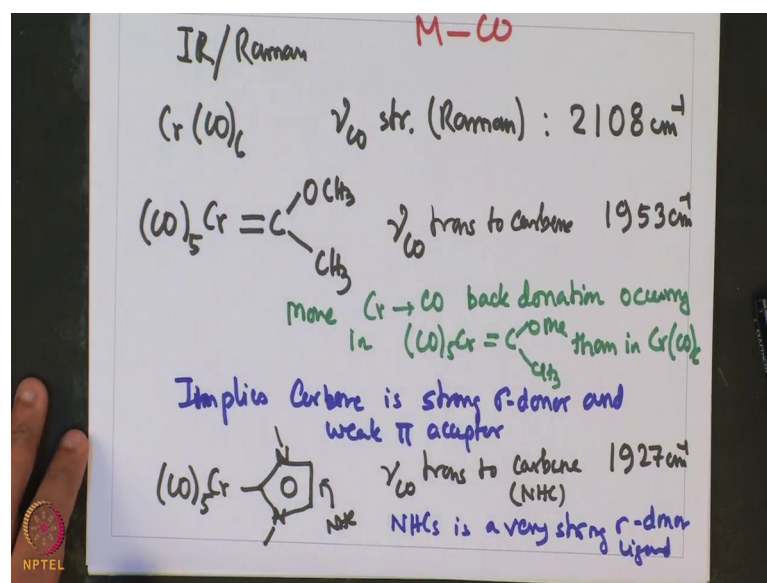 M–CO
IR/Raman
Cr(CO)₆ ν_CO str. (Raman) : 2108 cm⁻¹
(CO)₅Cr=C OCH₃ CH₃ ν_CO trans to carbene 1953 cm⁻¹
More Cr→CO back donation occurring
in (CO)₅Cr=C OMe CH₃ than in Cr(CO)₆
Implies Carbene is strong σ-donor and
weak π acceptor
(CO)₅Cr– N N NHC ν_CO trans to carbene 1927 cm⁻¹
(NHC)
NHCs is a very strong σ-donor
ligand
NPTEL